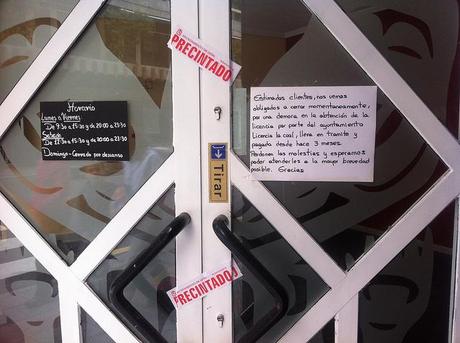 PRECINTADO
Horario
Lunes a Viernes
De 9:30 a 15:30 y de 20:00 a 23:30
Sabado
De 12:30 a 15:30 y 20:00 a 23:30
Domingo - Cerrado por descanso
Estimados clientes, nos vemos
obligados a cerrar momentaneamente,
por una demora en la obtención de la
licencia por parte del ayuntamiento
Licencia la cual, lleva en tramite y
pagada desde hace 3 meses.
Perdonen las molestias y esperamos
poder atenderles a la mayor brevedad
posible. Gracias
Tirar
PRECINTADO